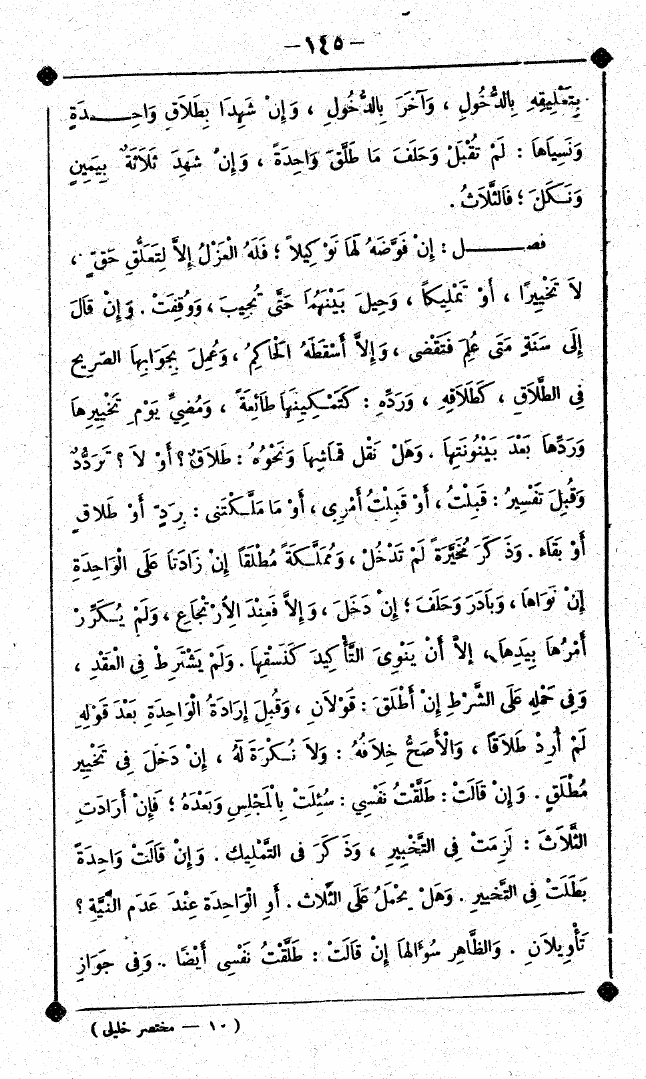 – ١٤٥ –
بِتَعْلِيقِهِ بِالدُّخُولِ ، وَآخَرَ بِالدُّخُولِ ، وَإِنْ شَهِدَا بِطَلَاقِ وَاحِـــدَةٍ
وَنَسِيَاهَا : لَمْ تُقْبَلْ وَحَلَفَ مَا طَلَّقَ وَاحِدَةً ، وَإِنْ شَهِدَ ثَلَاثَةٌ بِيَمِينٍ
وَنَـكَلَ ؛ فَالثَّلَاثُ .
فصــــــل : إِنْ فَوَّضَهُ لَهَا تَوْكِيلاً ؛ فَلَهُ الْعَزْلُ إِلاَّ لِتَعَلُّقِ حَقٍّ ،
لاَ تَخْيِيرًا ، أَوْ تَمْلِيكاً ، وَحِيلَ بَيْنَهُمَا حَتَّى تُجِيبَ ، وَوُقِفَتْ . وَإِنْ قَالَ
إِلَى سَنَةٍ مَتَى عُلِمَ فَتَقْضِى ، وَإِلاَّ أَسْقَطَهُ الْحَاكِمُ ، وَعُمِلَ بِجَوَابِهَا الصَّرِيحِ
فِى الطَّلَاقِ ، كَطَلَاقِهِ ، وَرَدِّهِ : كَتَمْـكِينِهَا طَائِعَةً ، وَمُضِىِّ يَوْمِ تَخْيِيرِهَا
وَرَدِّهَا بَعْدَ بَيْنُونَتِهَا . وَهَلْ نَقْلُ قُمَاشِهَا وَنَحْوُهُ : طَلَاقٌ ؟ أَوْ لاَ ؟ تَرَدُّدٌ
وَقُبِلَ تَفْسِيرُ : قَبِلْتُ ، أَوْ قَبِلْتُ أَمْرِى ، أَوْ مَا مَلَّـكْتَنِى : بِرَدٍّ أَوْ طَلَاقٍ
أَوْ بَقَاءٍ . وَذَ كَرَ مُخَيَّرَةً لَمْ تَدْخُلْ ، وَمُمَلَّـكَةً مُطْلَقاً إِنْ زَادَتَا عَلَى الْوَاحِدَةِ
إِنْ نَوَاهَا ، وَبَادَرَ وَحَلَفَ ؛ إِنْ دَخَلَ ، وَإِلاَّ فَعِنْدَ الِارْتِجَاعِ ، وَلَمْ يُـكَرِّرْ
أَمْرُهَا بِيَدِهَا ، إِلاَّ أَنْ يَنْوِىَ التَّأْكِيدَ كَنَسْقِهَا . وَلَمْ يُشْتَرَطْ فِى الْعَقْدِ ،
وَفِى حَمْلِهِ عَلَى الشَّرْطِ إِنْ أَطْلَقَ : قَوْلَانِ ، وَقُبِلَ إِرَادَةُ الْوَاحِدَةِ بَعْدَ قَوْلِهِ
لَمْ أُرِدْ طَلَاقًا ، وَالْأَصَحُّ خِلَافُهُ : وَلاَ نُـكْرَةَ لَهُ ، إِنْ دَخَلَ فِى تَخْيِيرٍ
مُطْلَقٍ . وَإِنْ قَالَتْ : طَلَّقْتُ نَفْسِي : سُئِلَتْ بِالْمَجْلِسِ وَبَعْدَهُ ؛ فَإِنْ أَرَادَتِ
الثَّلَاثَ : لَزِمَتْ فِى التَّخْيِيرِ ، وَذَ كَرَ فِى التَّمْلِيكِ . وَإِنْ قَالَتْ وَاحِدَةً
بَطَلَتْ فِى التَّخْيِيرِ . وَهَلْ يُحْمَلُ عَلَى الثَّلَاث . أَوِ الْوَاحِدَةِ عِنْدَ عَدَمِ النِّيَّةِ ؟
تَأْوِيلَانِ . وَالظَّاهِرُ سُؤَالهَا إِنْ قَالَتْ : طَلَّقْتُ نَفْسِى أَيْضًا . وَفِى جَوَازِ
( ١٠ — مختصر خليل )